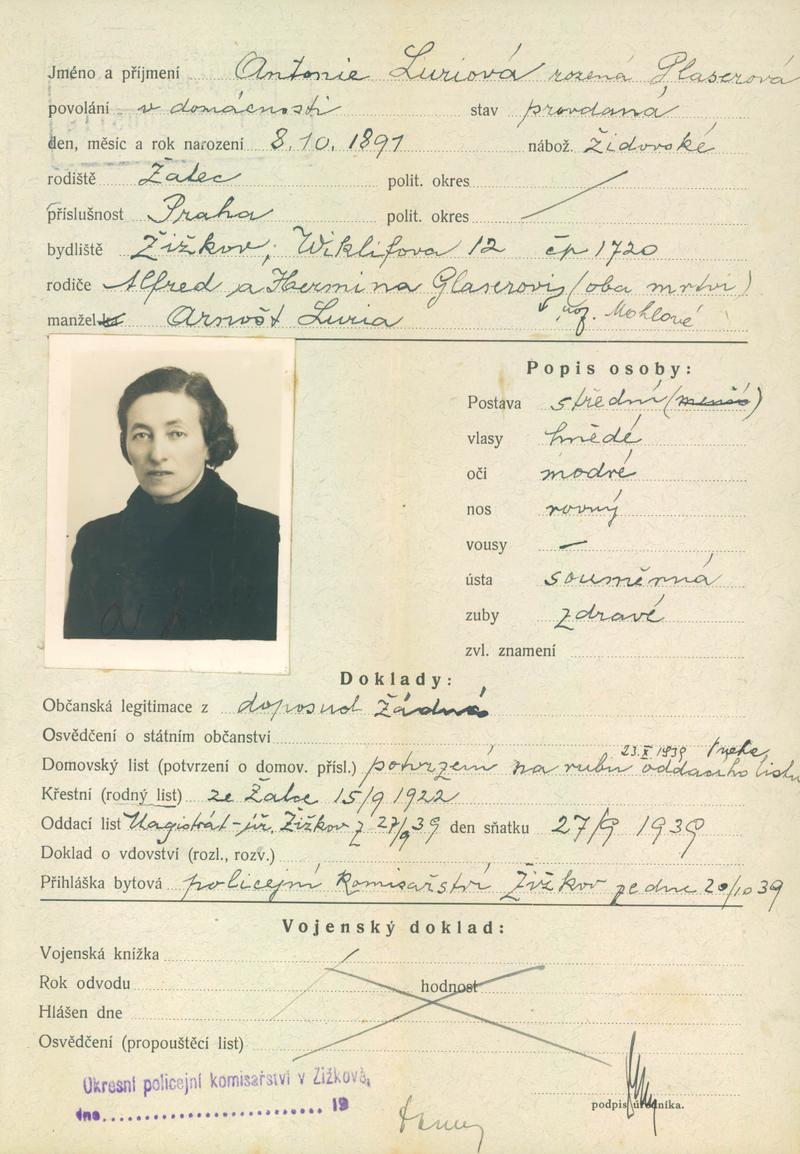 Jméno a příjmení Antonie Luriová rozená Glaserová
povolání v domácnosti stav provdaná
den, měsíc a rok narození 8.10.1891 nábož. židovské
rodiště Žatec polit. okres
příslušnost Praha polit. okres
bydliště Žižkov, Wiklifova 12 čp 1720
rodiče Alfred a Hermina Glaserovi (oba mrtvi)
manžel Arnošt Luria roz. Mohlové
Popis osoby:
Postava střední (menší)
vlasy hnědé
oči modré
nos rovný
vousy —
ústa souměrná
zuby zdravé
zvl. znamení
Doklady:
Občanská legitimace z doposud žádná
Osvědčení o státním občanství
23.X 1939
Domovský list (potvrzení o domov. přísl.) potvrzení na rubu oddacího listu
Křestní (rodný list) ze Žatce 15/9 1922
Oddací list Magistrát-úř. Žižkov z 27/9 39 den sňatku 27/9 1939
Doklad o vdovství (rozl., rozv.)
Přihláška bytová policejní komisařství Žižkov ze dne 20/10 39
Vojenský doklad:
Vojenská knížka
Rok odvodu hodnost
Hlášen dne
Osvědčení (propouštěcí list)
Okresní policejní komisařství v Žižkově,
dne 19
podpis úředníka.